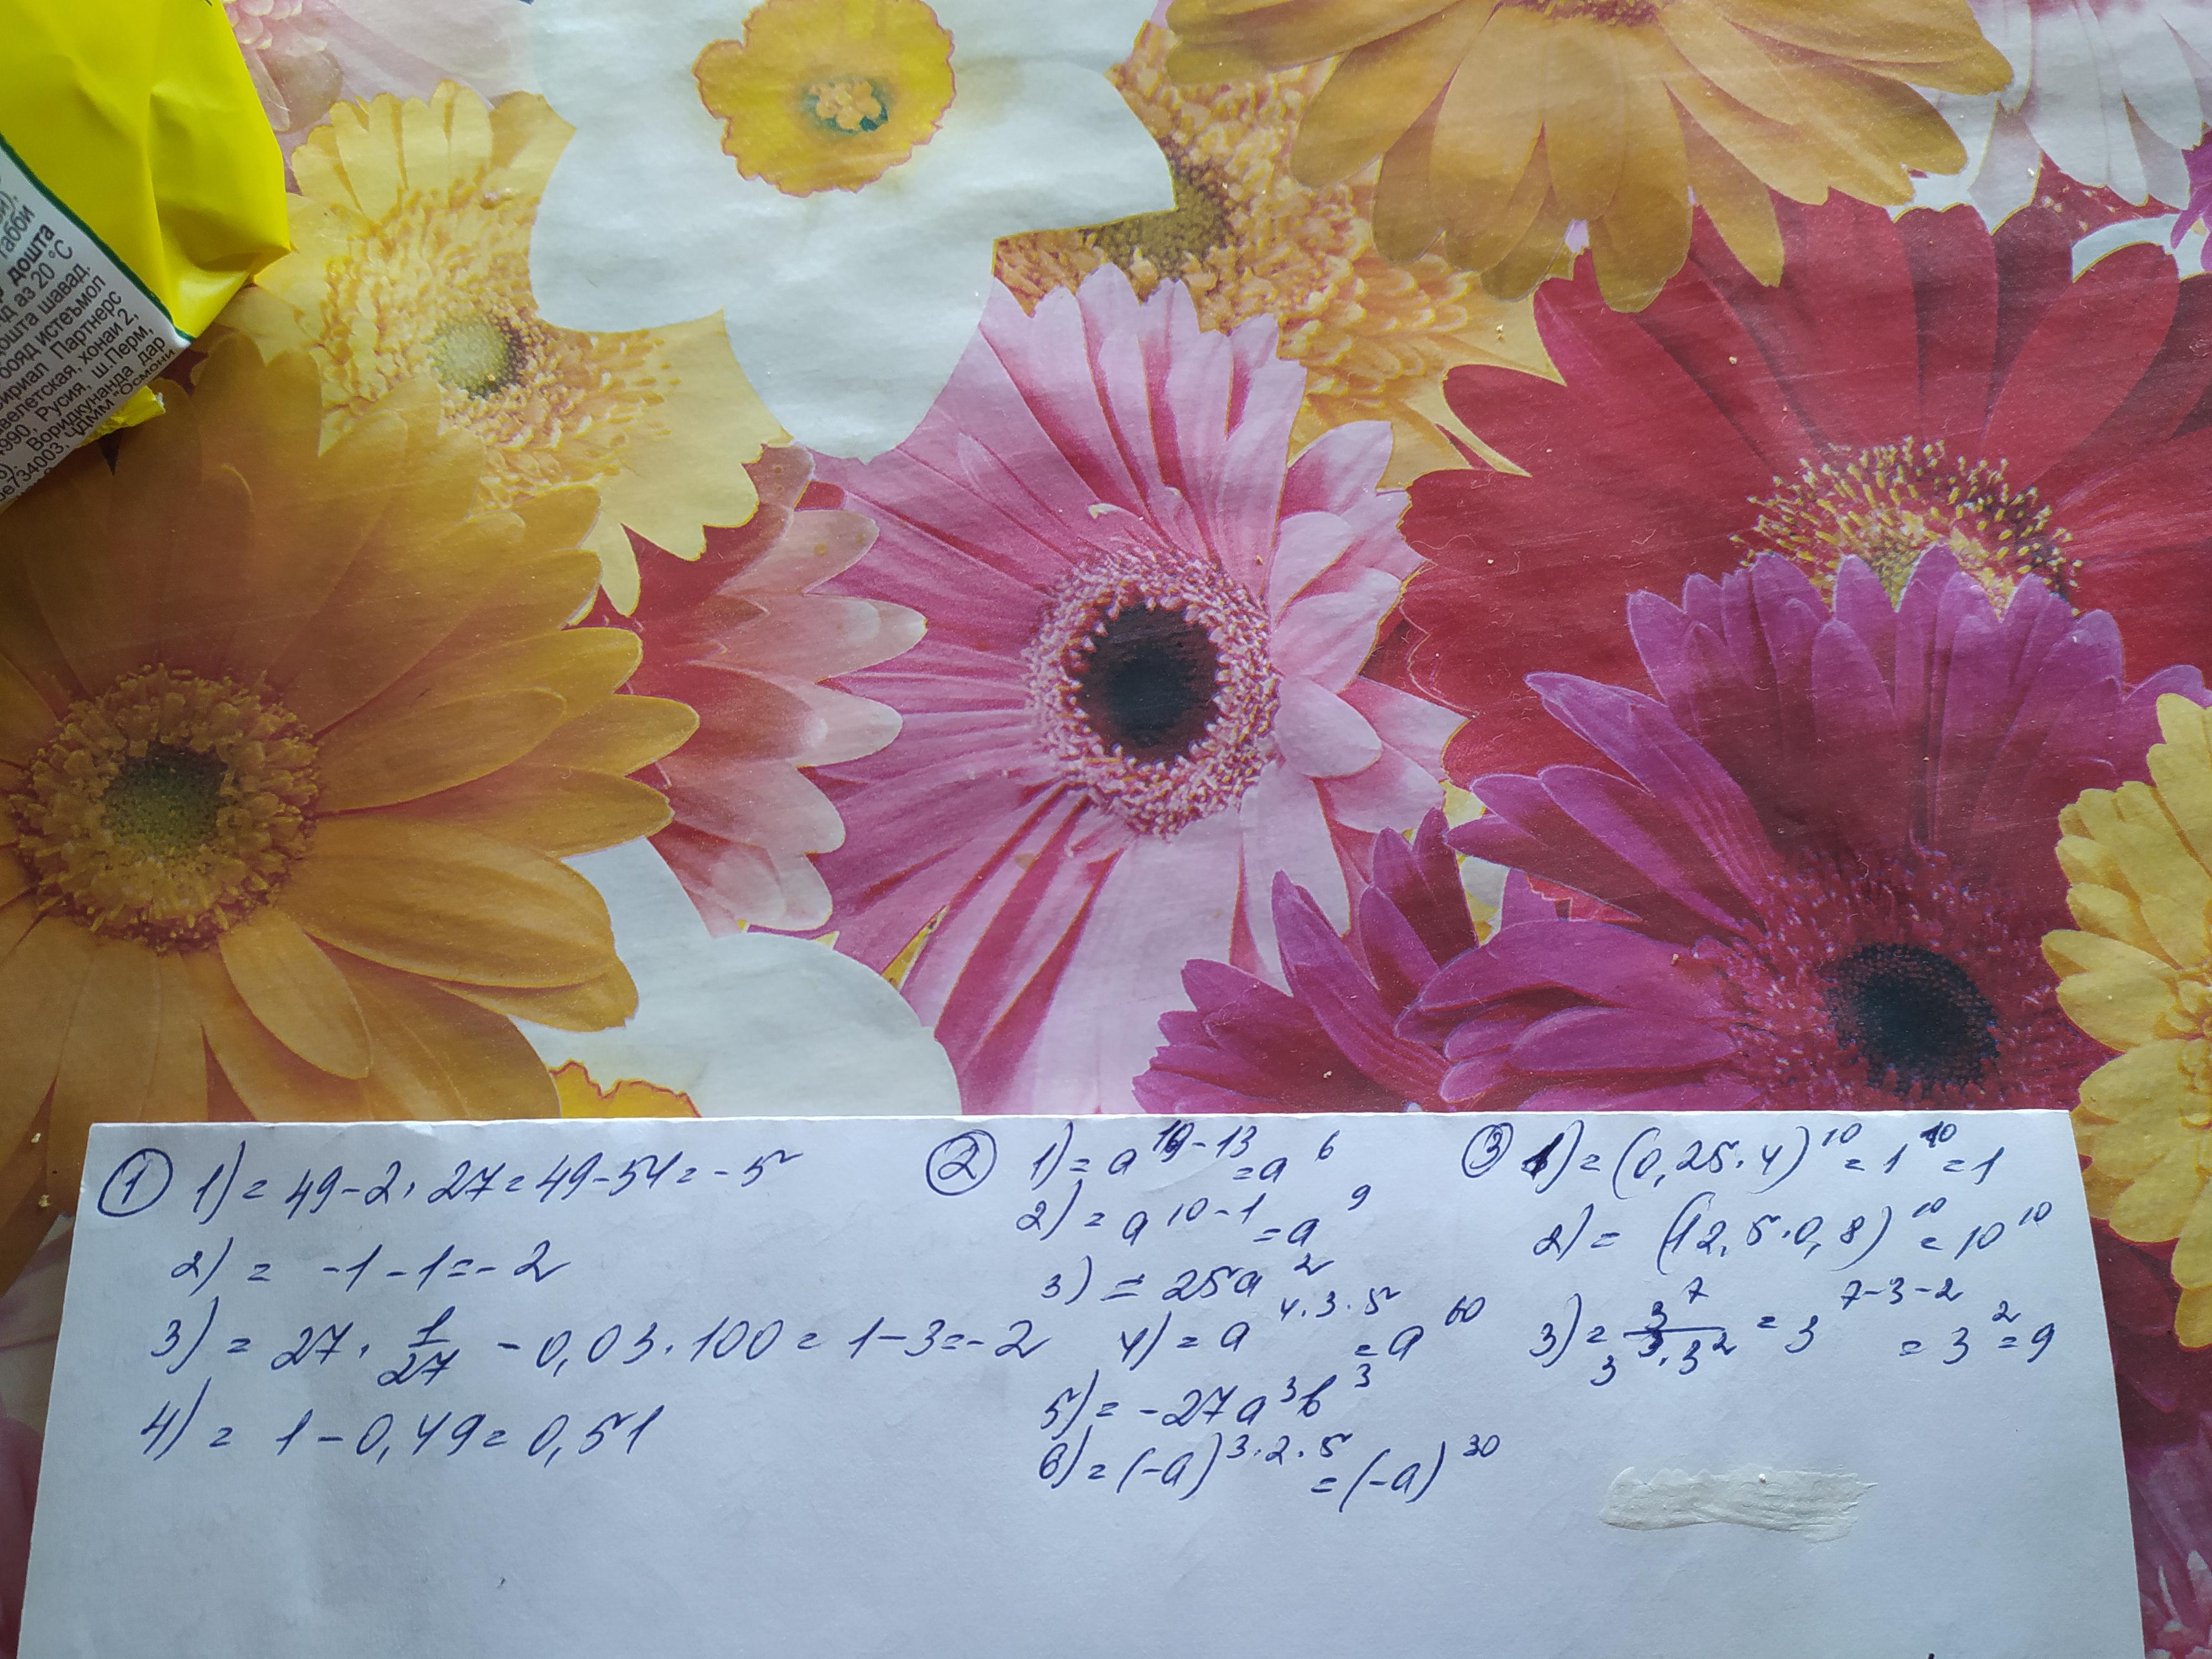 габби
р дошта
д аз 20 °C
дошта шавад.
бояд истеъмол
Партнерс
хонаи 2,
990, Русия, ш.Перм,
Воридкунанда дар
734003, ҶДММ "Осмони
① 1) = 49-2·27=49-54=-5
2) = -1-1=-2
3) = 27·1/27-0,03·100=1-3=-2
4) = 1-0,49=0,51
② 1) = a^19-13=a^6
2) = a^10-1=a^9
3) = 25a^2
4) = a^4·3·5=a^60
5) = -27a^3b^3
6) = (-a)^3·2·5=(-a)^30
③ 1) = (0,25·4)^10=1^10=1
2) = (12,5·0,8)^10=10^10
3) = 3^7/3^3·3^2=3^7-3-2=3^2=9